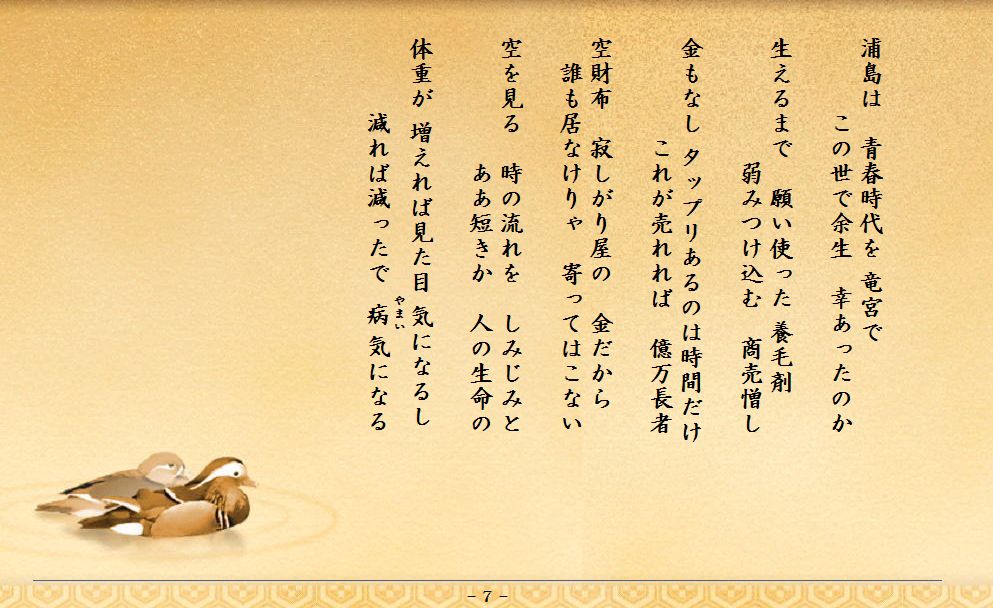 浦島は　青春時代を　竜宮で
この世で余生　幸あったのか
生えるまで　願い使った　養毛剤
弱みつけ込む　商売憎し
金もなし　タップリあるのは時間だけ
これが売れれば　億万長者
空財布　寂しがり屋の　金だから
誰も居なけりゃ　寄ってはこない
空を見る　時の流れを　しみじみと
ああ短きか　人の生命の
体重が　増えれば見た目　気になるし
減れば減ったで　病気になる
やまい
- 7 -